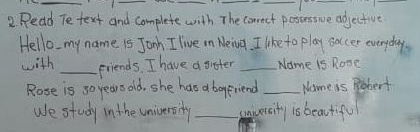 2. Read Te text and Complete with The Correct possessive adjective.
Hello_my name is Jonh I live in Neiva, I like to play soccer everyday,
with ____ friends, I have a sister ____ Name is Rose
Rose is 30 years old. she has a boyfriend ____ Name is Robert
We study in the university ____ university is beautiful.